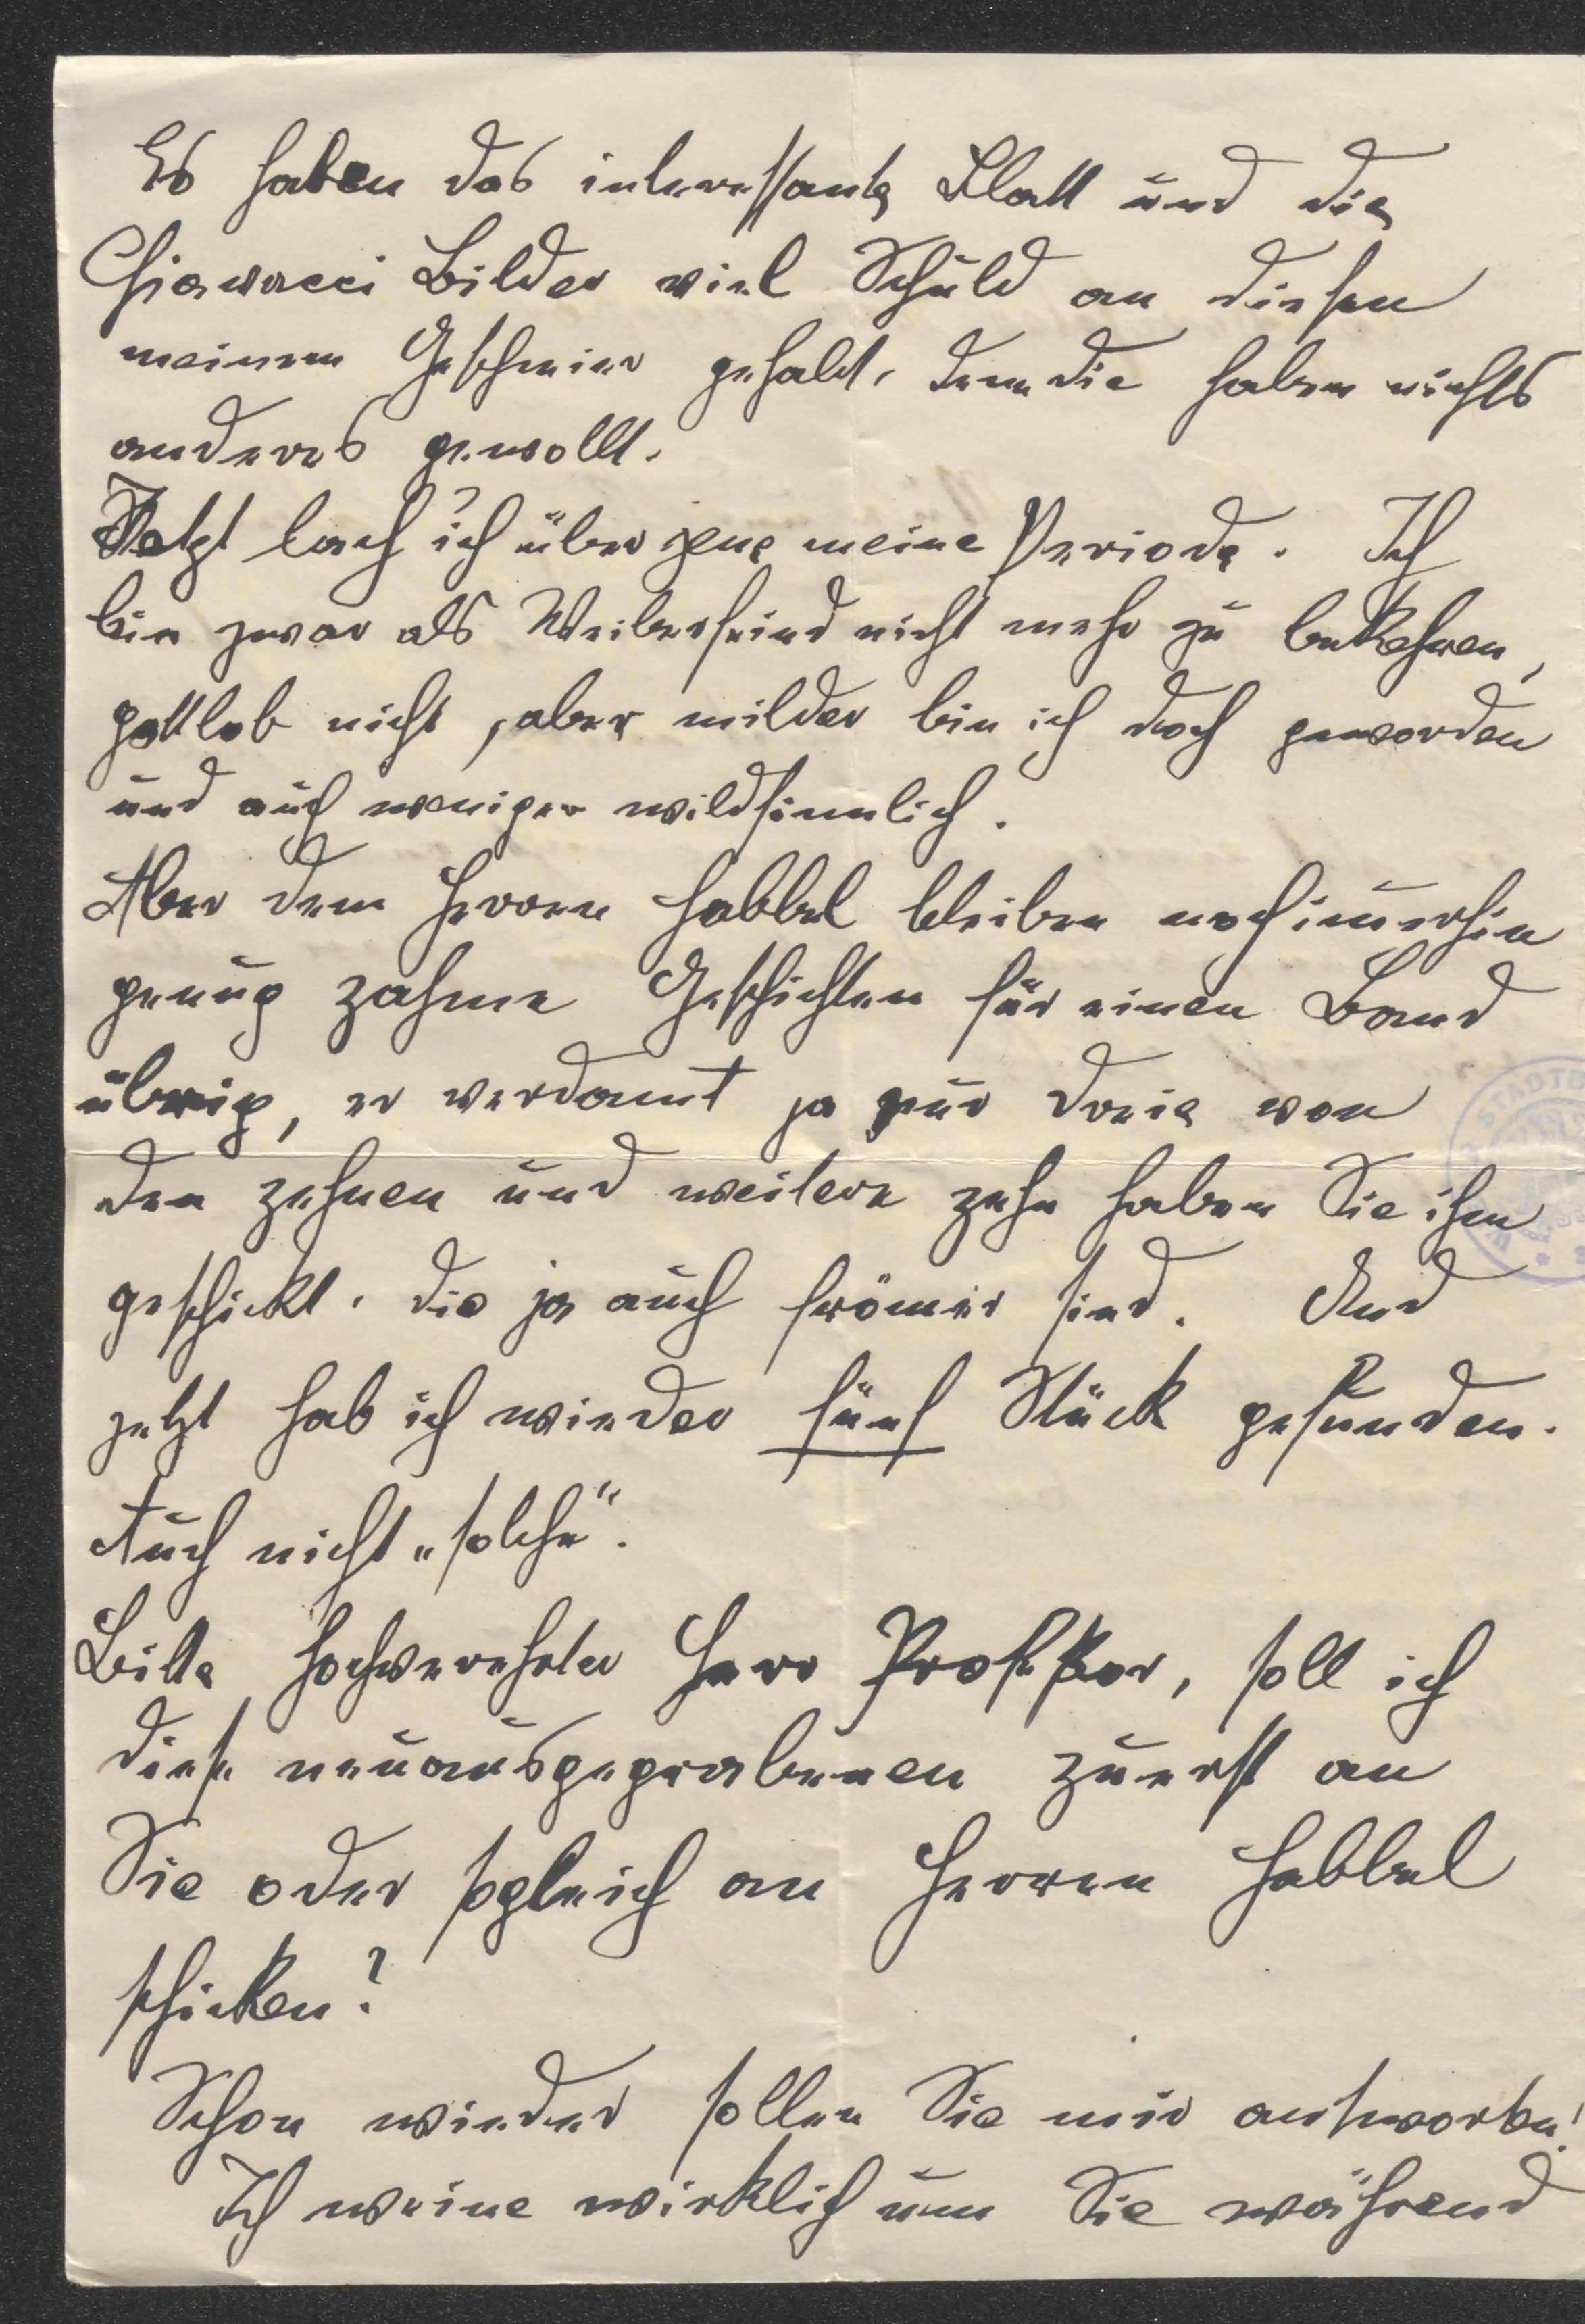 Es haben das interessante Blatt und die
Chiavacci Bilder viel Schuld an diesen
meinem Geschmier gehabt, denn die haben nichts
anderes gewollt.
Jetzt lach ich über jene meine Periode. Ich
bin zwar als Weiberfeind nicht mehr zu bekehren,
gottlob nicht, aber milder bin ich doch geworden
und auch weniger wildsinnlich.
Aber dem Herren Habbel bleiben noch im̅erhin
genug zahme Geschichten für einen Band
übrig, er verdam̅t ja nur dreie von
den zehnen und weitere zehn haben Sie ihm
geschickt, die ja auch fröm̅er sind. Und
jetzt hab ich wieder fünf Stück gefunden.
Auch nicht „solche“.
Bitte hochverehrter Herr Professor, soll ich
diese neuausgegrabenen zuerst an
Sie oder sogleich an Herren Habbel
schicken?
Schon wieder sollen Sie mir antworten!
Ich weine wirklich um Sie während
STADTB